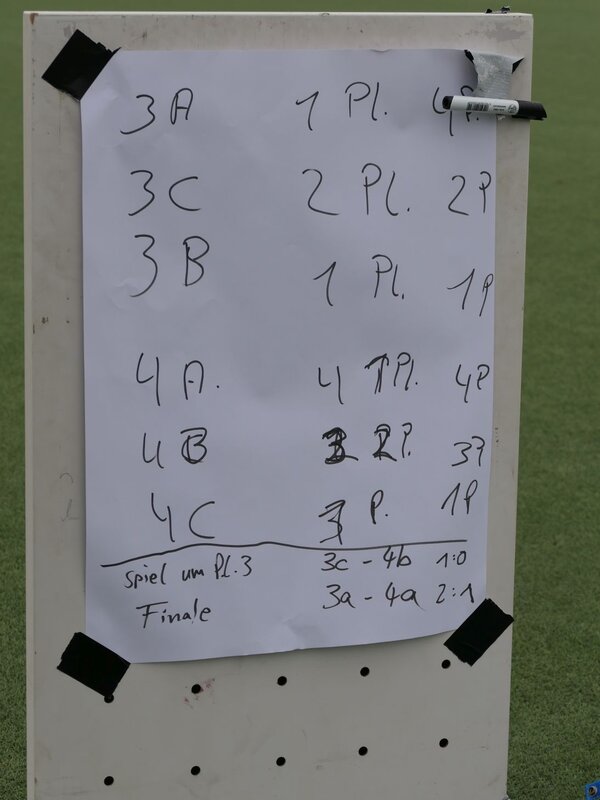 3A 1 Pl. 4P.
3C 2 Pl. 2P
3B 1 Pl. 1P
4A. 4 1Pl. 4P
4B 2P. 3P
4C 3 P. 1P
Spiel um Pl.3 3c - 4b 1:0
Finale 3a - 4a 2:1